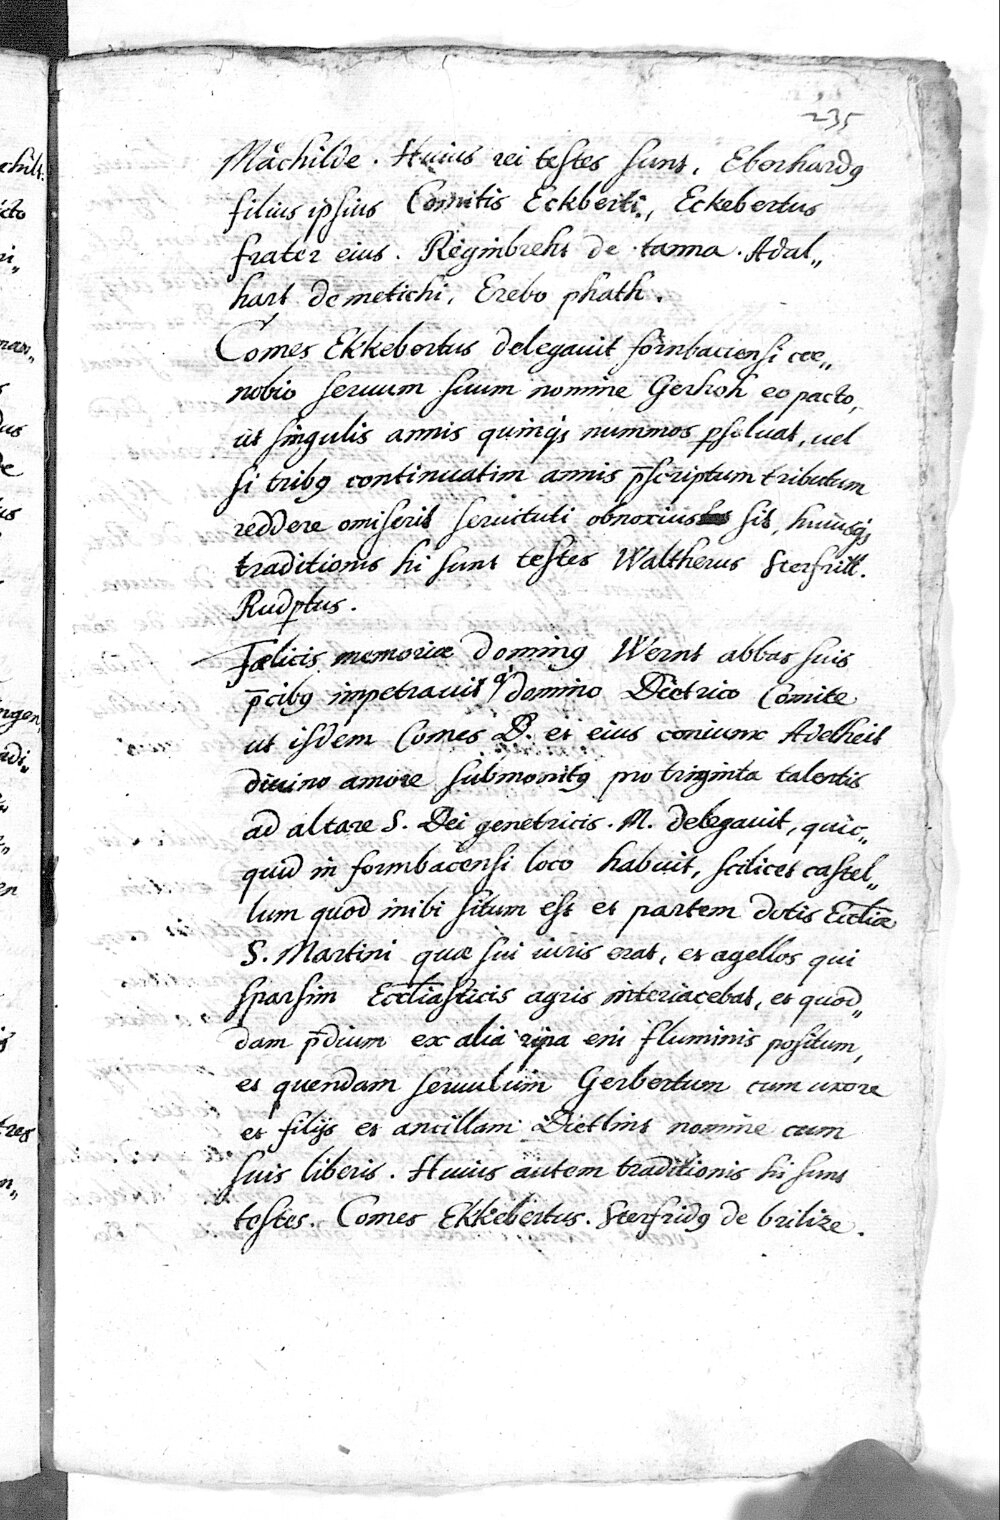 235
Mächilde. Huius rei testes sunt, Eberhardꝯ
filius ipsius Comitis Eckberti, Eckebertus
frater eius. Reginbreht de tanna. Adal„
hart de metichi, Erebo phath.
Comes Ekkebertus delegavit formbacensi coe„
nobio seruum suum nomine Gerhoh eo pacto,
ut singulis annis quinqꝫ nummos ꝑsoluat, uel
si tribꝯ continuatim annis p̄scriptum tributum
reddere omiserit seruituti obnoxius sit, huiusqꝫ
traditionis hi sunt testes Waltherus Sterfritt.
Rudꝑtus.
Fœlicis memoriæ dominꝯ Wernt abbas suis
p̄cibꝯ impetravit a domino Dietrico Comite
ut isdem Comes D. et eius coniunx Adelheit
diuino amore submonitꝯ pro triginta talentis
ad altare S. Dei genetricis. M. delegauit, quic„
quid in formbacensi loco habuit, scilicet castel„
lum quod inibi situm est et partem dotis Eccl̄iæ
S. Martini quæ sui iuris erat, et agellos qui
sparsim Eccl̄iasticis agris interiacebat, et quod„
dam p̄dium ex alia ripa eni fluminis positum,
et quendam seruulum Gerbertum cum uxore
et filijs et ancillam Dietlint nomine cum
suis liberis. Huius autem traditionis hi sunt
testes. Comes Ekkebertus. Sterfridꝯ de brilize.